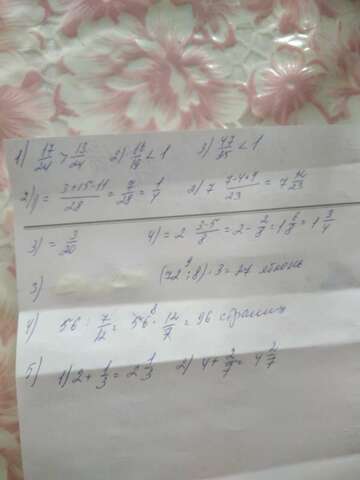 1) 17/24 > 13/24 2) 17/19 < 1 3) 47/35 < 1
2) 1) = 3+15-11/28 = 7/28 = 1/4 2) 7 7-4+9/23 = 7 12/23
3) = 3/20 4) = 2 3-5/8 = 2 - 2/8 = 1 6/8 = 1 3/4
3) (72 : 8) · 3 = 27 яблонь
4) 56 : 7/12 = 56 · 12/7 = 96 страниц
5) 1) 2 + 1/3 = 2 1/3 2) 4 + 2/7 = 4 2/7